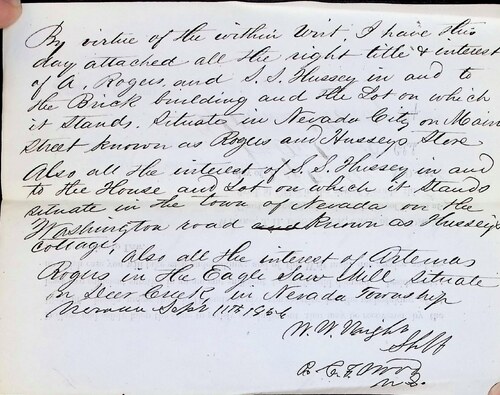 By virtue of the within writ, I have this
day attached all the right title & interest
of A. Rogers, and S. S. Hussey in and to
the Brick building and the Lot on which
it stands. Situate in Nevada City on Main
Street known as Rogers and Husseys Store
Also all the interest of S. S. Hussey in and
to the House and Lot on which it stands
situate in the town of Nevada on the
Washington road and known as Hussey's
cottage,
Also all the interest of Artemas
Rogers in the Eagle Saw Mill Situate
on Deer Creek, in Nevada Township
Nevada Sept 11th
W. W. Wright
Shff
C. F. Wood